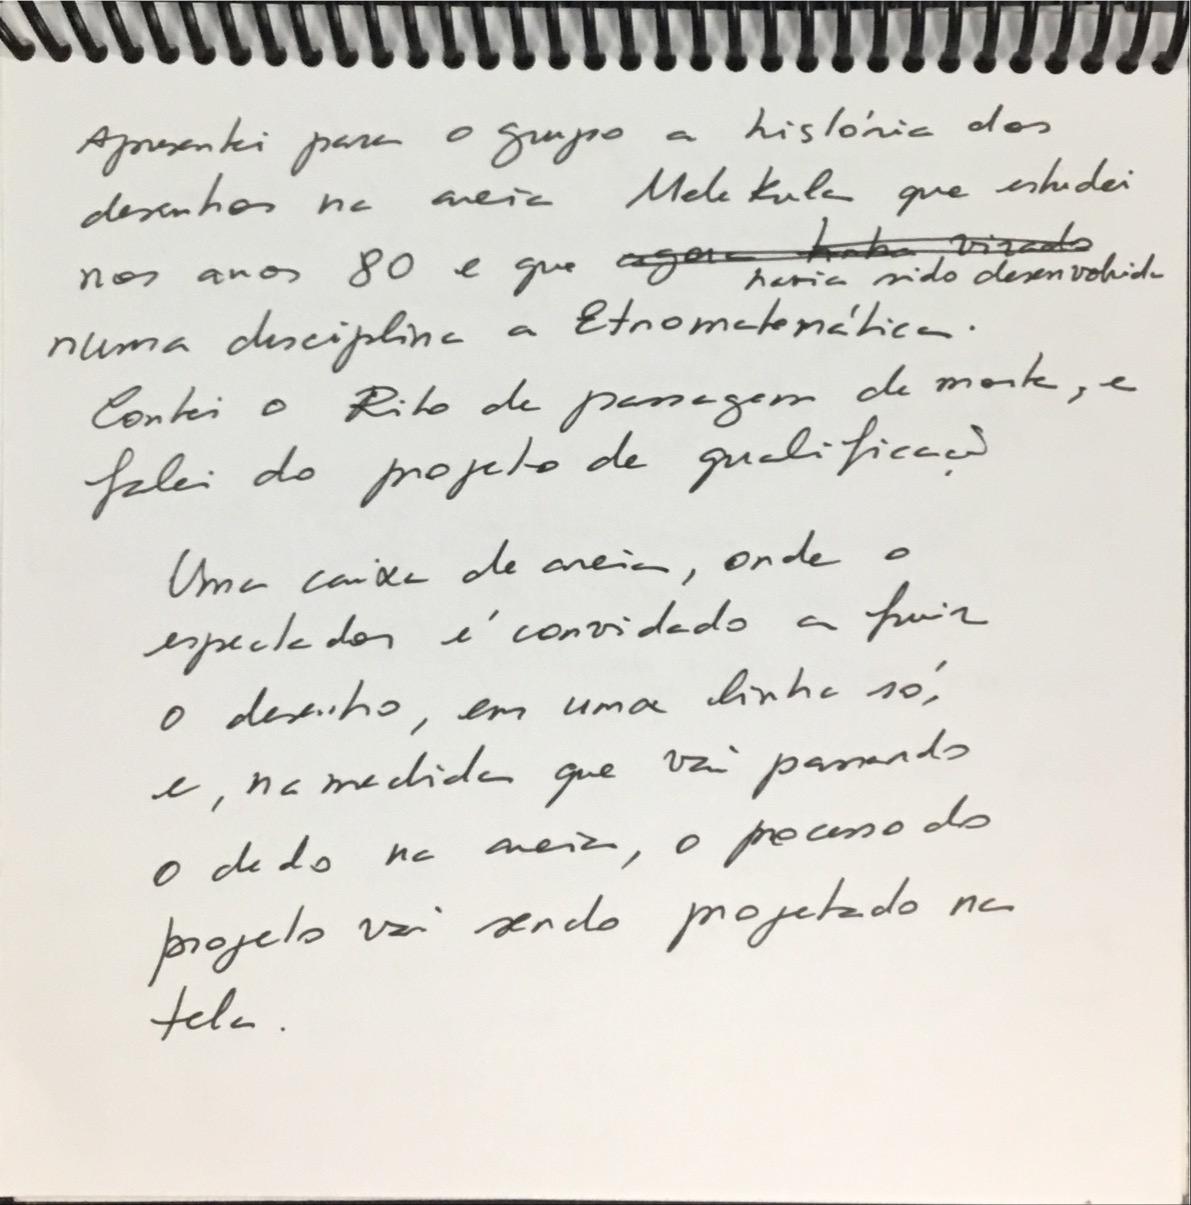 Apresentei para o grupo a história dos
desenhos na areia Malekula que estudei
nos anos 80 e que agora tinha virado
havia sido desenvolvida
numa disciplina a Etnomatemática.
Contei o Rito de passagem de morte, e
falei do projeto de qualificação
Uma caixa de areia, onde o
espectador é convidado a fruir
o desenho, em uma linha só,
e, na medida que vai passando
o dedo na areia, o processo do
projeto vai sendo projetado na
tela.